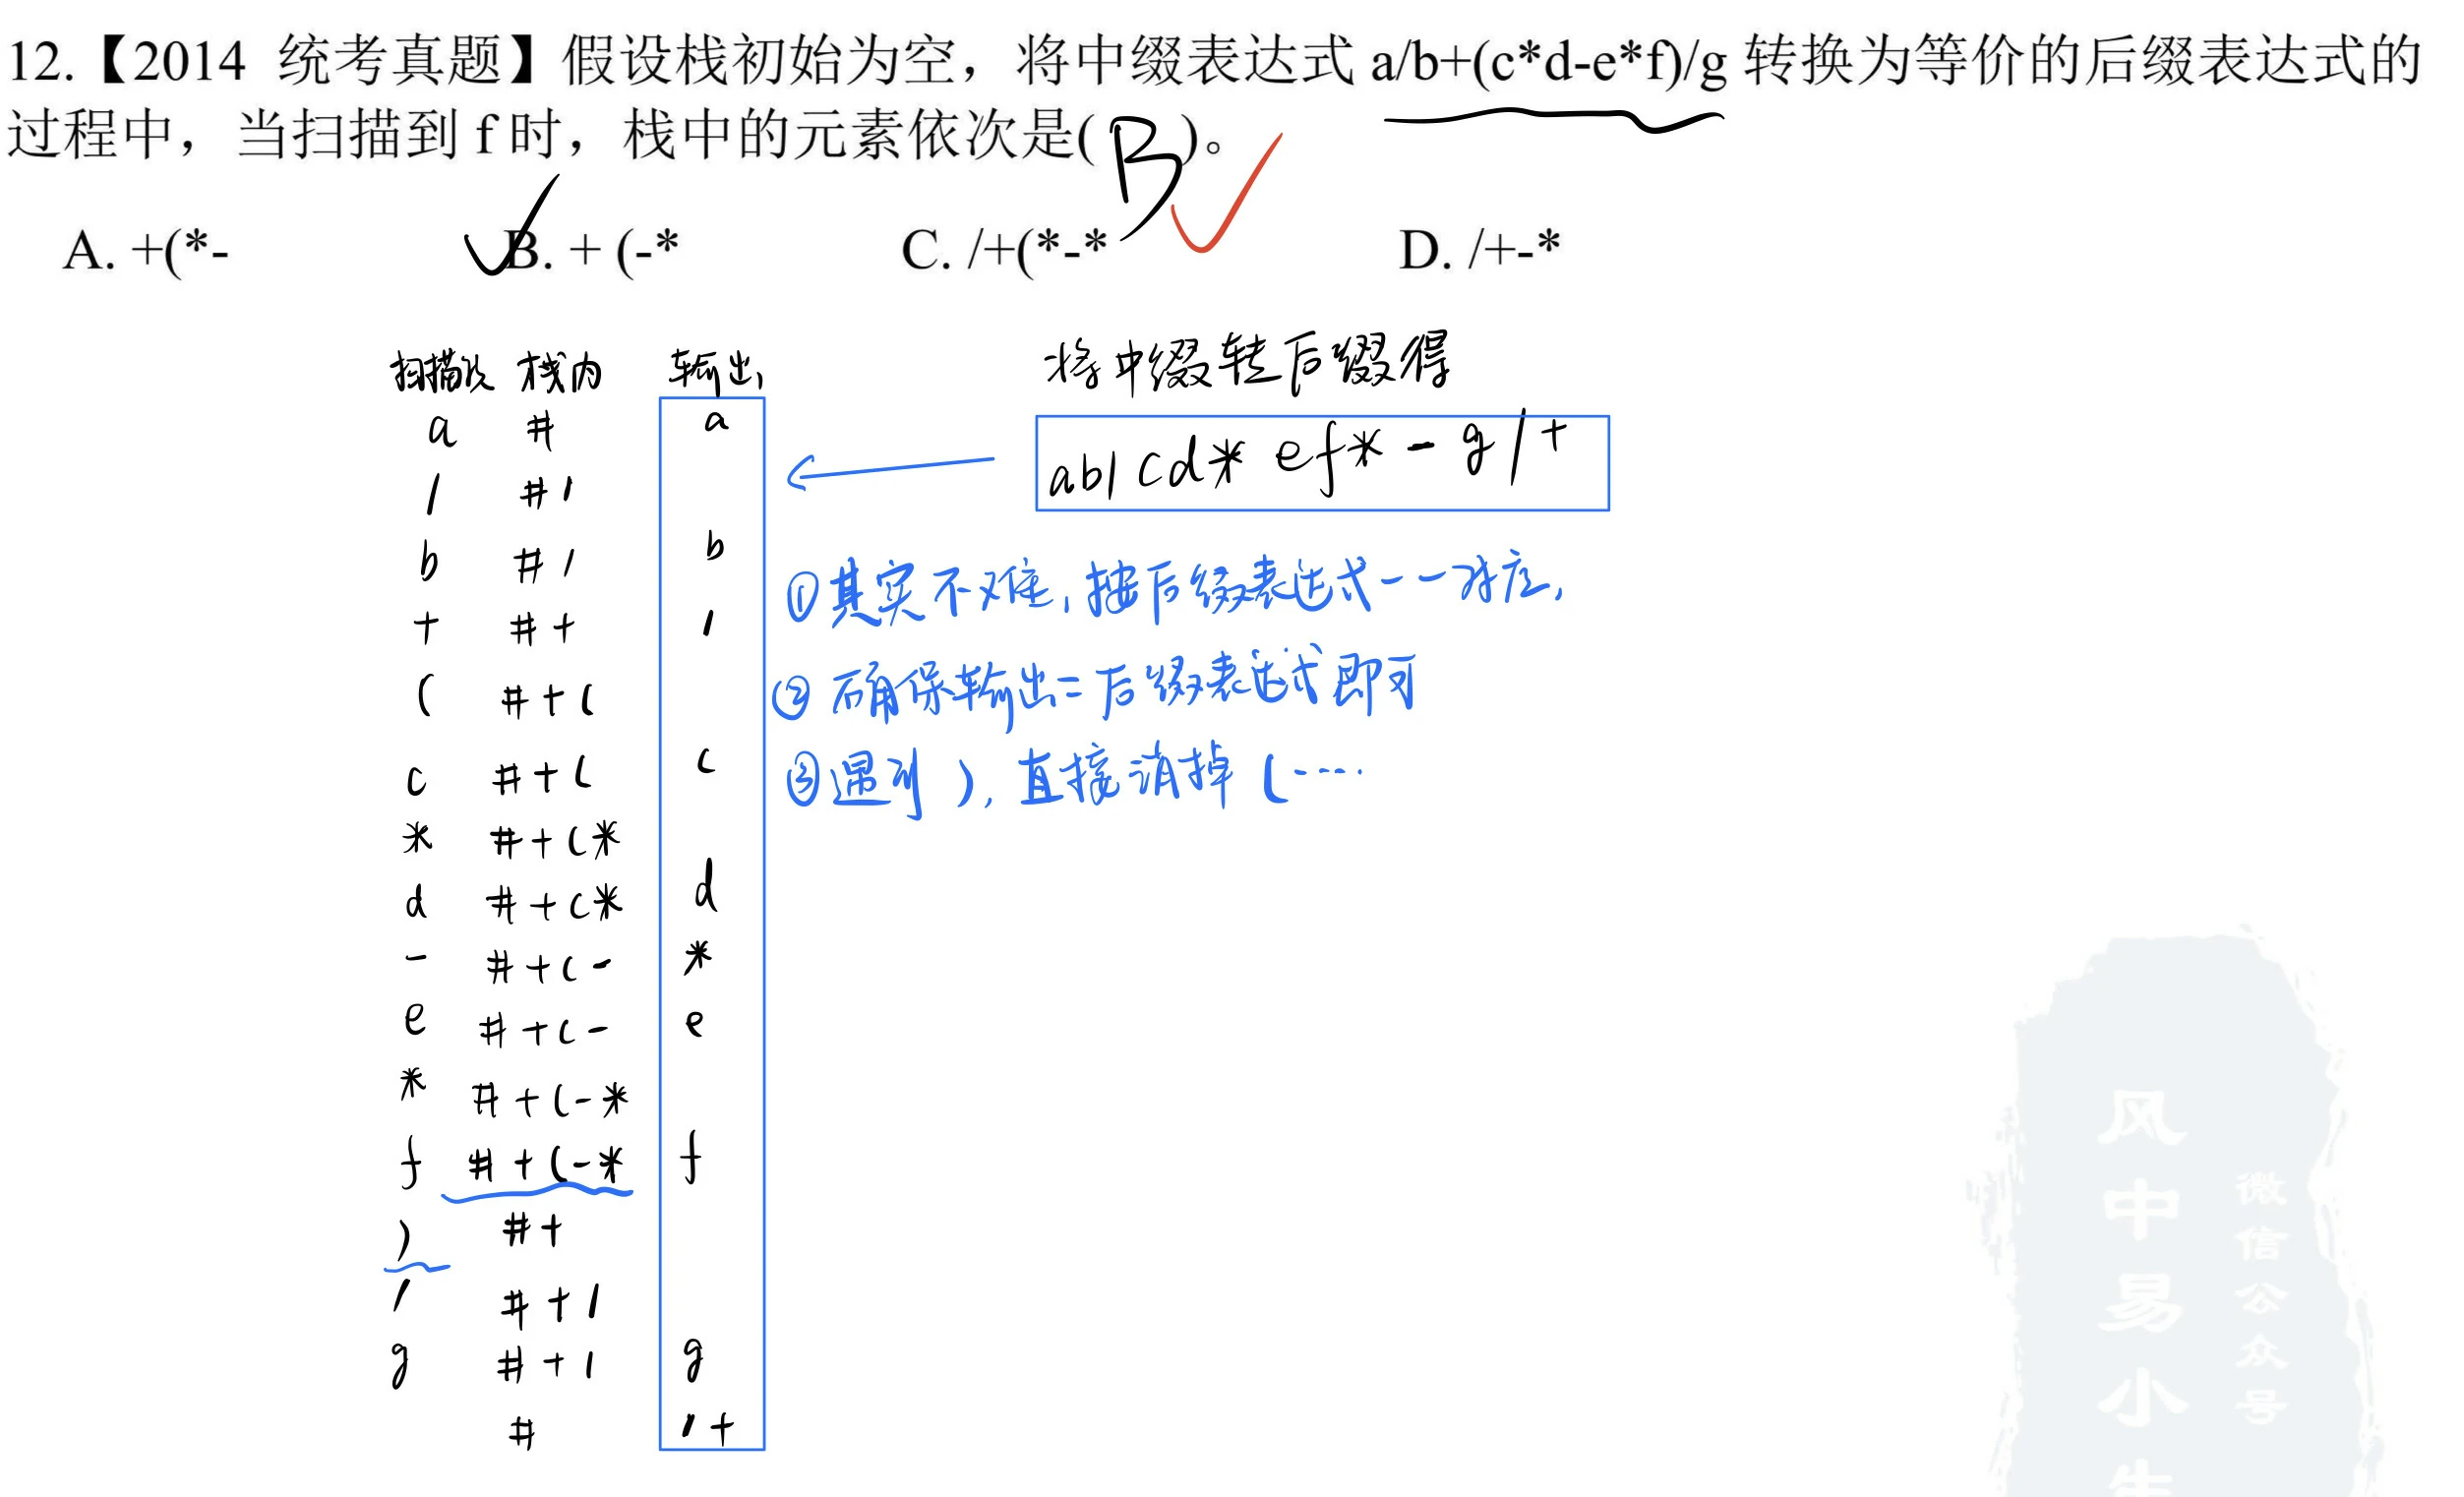 12.【2014 统考真题】假设栈初始为空，将中缀表达式 a/b+(c*d-e*f)/g 转换为等价的后缀表达式的
过程中，当扫描到 f 时，栈中的元素依次是( B )。
A. +(*-
B. + (-*
C. /+(*-*
D. /+-*
扫描次 栈内 输出
a # a
/ #/
b #/ b
+ #+ /
( #+(
c #+( c
* #+(*
d #+(* d
- #+(- *
e #+(- e
* #+(-*
f #+(-* f
) #+
/ #+/
g #+/ g
# /+
将中缀转后缀得
ab/cd*ef*-g/+
①其实不难，按后缀表达式一一对应，
②确保输出=后缀表达式即可
③遇到 )，直接消掉 (····
风中易小生
微信公众号